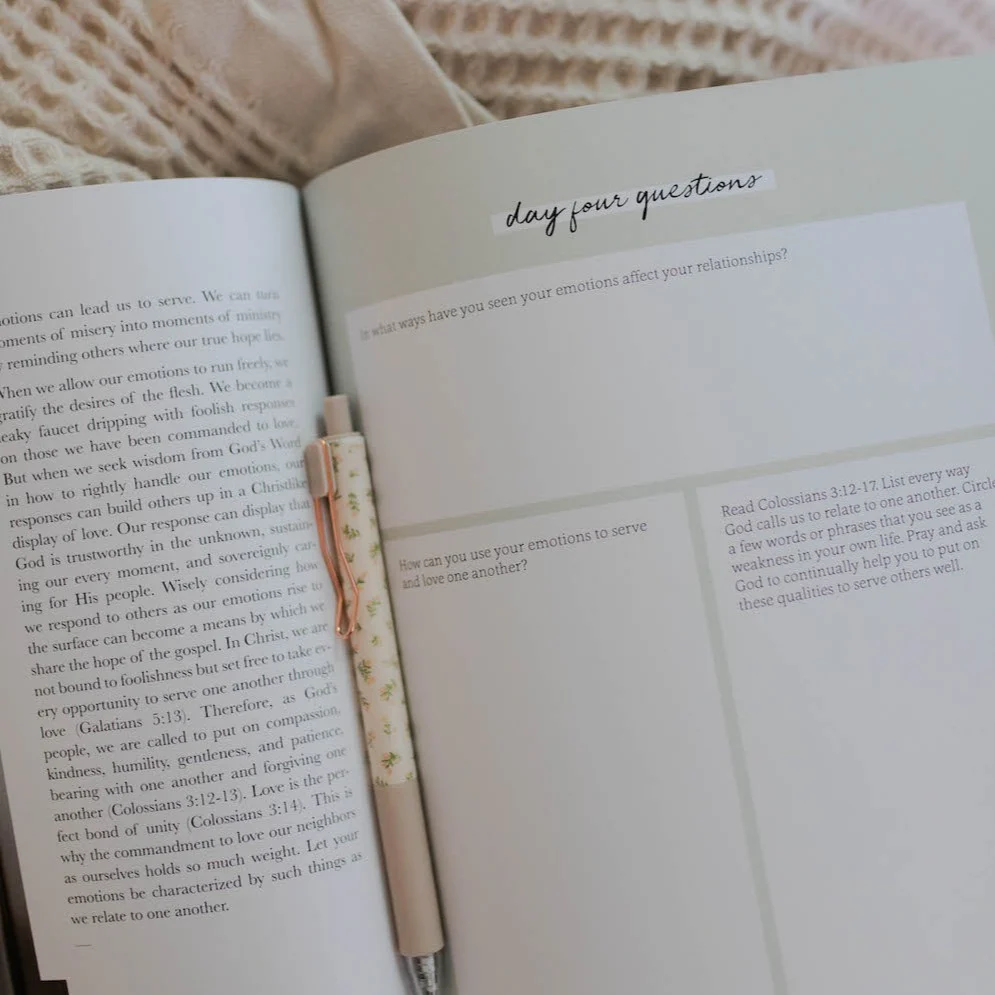 otions can lead us to serve. We can turn
oments of misery into moments of ministry
y reminding others where our true hope lies.
When we allow our emotions to run freely, we
gratify the desires of the flesh. We become a
eaky faucet dripping with foolish responses
on those we have been commanded to love.
But when we seek wisdom from God's Word
in how to rightly handle our emotions, our
responses can build others up in a Christlike
display of love. Our response can display that
God is trustworthy in the unknown, sustain-
ing our every moment, and sovereignly car-
ing for His people. Wisely considering how
we respond to others as our emotions rise to
the surface can become a means by which we
share the hope of the gospel. In Christ, we are
not bound to foolishness but set free to take ev-
ery opportunity to serve one another through
love (Galatians 5:13). Therefore, as God's
people, we are called to put on compassion,
kindness, humility, gentleness, and patience,
bearing with one another and forgiving one
another (Colossians 3:12-13). Love is the per-
fect bond of unity (Colossians 3:14). This is
why the commandment to love our neighbors
as ourselves holds so much weight. Let your
emotions be characterized by such things as
we relate to one another.
day four questions
In what ways have you seen your emotions affect your relationships?
How can you use your emotions to serve
and love one another?
Read Colossians 3:12-17. List every way
God calls us to relate to one another. Circle
a few words or phrases that you see as a
weakness in your own life. Pray and ask
God to continually help you to put on
these qualities to serve others well.